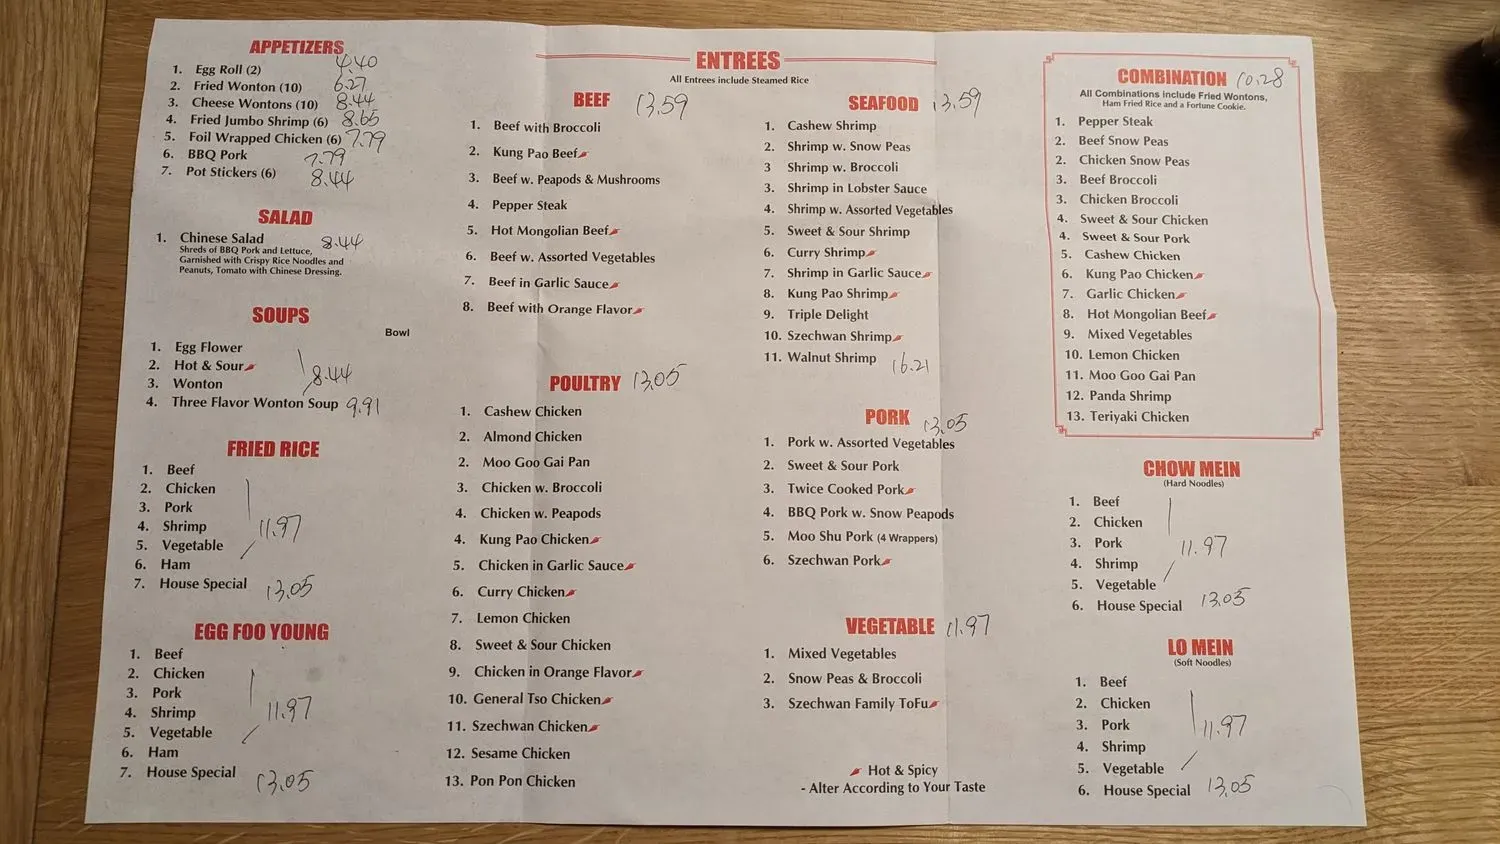 APPETIZERS
1. Egg Roll (2) 4.40
2. Fried Wonton (10) 6.27
3. Cheese Wontons (10) 8.44
4. Fried Jumbo Shrimp (6) 8.65
5. Foil Wrapped Chicken (6) 7.79
6. BBQ Pork 7.79
7. Pot Stickers (6) 8.44
SALAD
1. Chinese Salad 8.44
Shreds of BBQ Pork and Lettuce,
Garnished with Crispy Rice Noodles and
Peanuts, Tomato with Chinese Dressing.
SOUPS
Bowl
1. Egg Flower
2. Hot & Sour
3. Wonton 8.44
4. Three Flavor Wonton Soup 9.91
FRIED RICE
1. Beef
2. Chicken
3. Pork
4. Shrimp 11.97
5. Vegetable
6. Ham
7. House Special 13.05
EGG FOO YOUNG
1. Beef
2. Chicken
3. Pork
4. Shrimp 11.97
5. Vegetable
6. Ham
7. House Special 13.05
ENTREES
All Entrees include Steamed Rice
BEEF 13.59
1. Beef with Broccoli
2. Kung Pao Beef
3. Beef w. Peapods & Mushrooms
4. Pepper Steak
5. Hot Mongolian Beef
6. Beef w. Assorted Vegetables
7. Beef in Garlic Sauce
8. Beef with Orange Flavor
POULTRY 13.05
1. Cashew Chicken
2. Almond Chicken
2. Moo Goo Gai Pan
3. Chicken w. Broccoli
4. Chicken w. Peapods
4. Kung Pao Chicken
5. Chicken in Garlic Sauce
6. Curry Chicken
7. Lemon Chicken
8. Sweet & Sour Chicken
9. Chicken in Orange Flavor
10. General Tso Chicken
11. Szechwan Chicken
12. Sesame Chicken
13. Pon Pon Chicken
SEAFOOD 13.59
1. Cashew Shrimp
2. Shrimp w. Snow Peas
3 Shrimp w. Broccoli
3. Shrimp in Lobster Sauce
4. Shrimp w. Assorted Vegetables
5. Sweet & Sour Shrimp
6. Curry Shrimp
7. Shrimp in Garlic Sauce
8. Kung Pao Shrimp
9. Triple Delight
10. Szechwan Shrimp
11. Walnut Shrimp 16.21
PORK 13.05
1. Pork w. Assorted Vegetables
2. Sweet & Sour Pork
3. Twice Cooked Pork
4. BBQ Pork w. Snow Peapods
5. Moo Shu Pork (4 Wrappers)
6. Szechwan Pork
VEGETABLE 11.97
1. Mixed Vegetables
2. Snow Peas & Broccoli
3. Szechwan Family ToFu
Hot & Spicy
- Alter According to Your Taste
COMBINATION 10.28
All Combinations include Fried Wontons,
Ham Fried Rice and a Fortune Cookie.
1. Pepper Steak
2. Beef Snow Peas
2. Chicken Snow Peas
3. Beef Broccoli
3. Chicken Broccoli
4. Sweet & Sour Chicken
4. Sweet & Sour Pork
5. Cashew Chicken
6. Kung Pao Chicken
7. Garlic Chicken
8. Hot Mongolian Beef
9. Mixed Vegetables
10. Lemon Chicken
11. Moo Goo Gai Pan
12. Panda Shrimp
13. Teriyaki Chicken
CHOW MEIN
(Hard Noodles)
1. Beef
2. Chicken
3. Pork 11.97
4. Shrimp
5. Vegetable
6. House Special 13.05
LO MEIN
(Soft Noodles)
1. Beef
2. Chicken
3. Pork 11.97
4. Shrimp
5. Vegetable
6. House Special 13.05